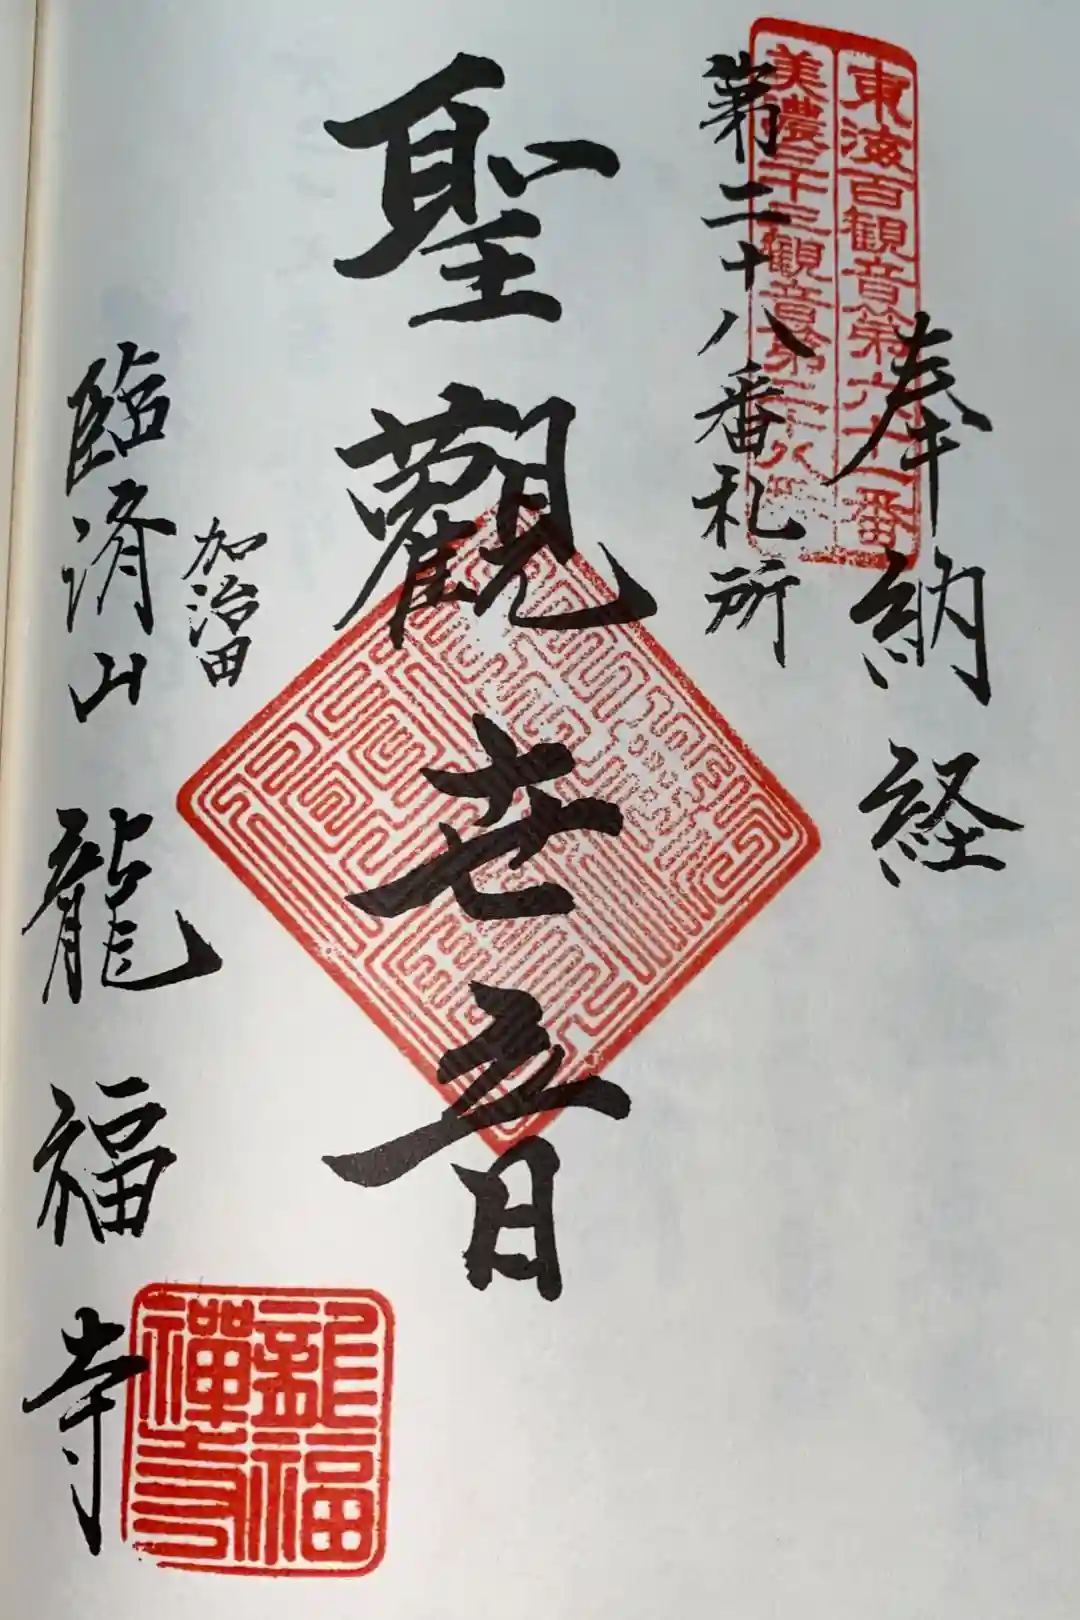 東海百観音第六十一番
美濃三十三観音第二十八
奉納経
第二十八番札所
聖觀世音
加治田
臨済山龍福寺
龍福
禅寺